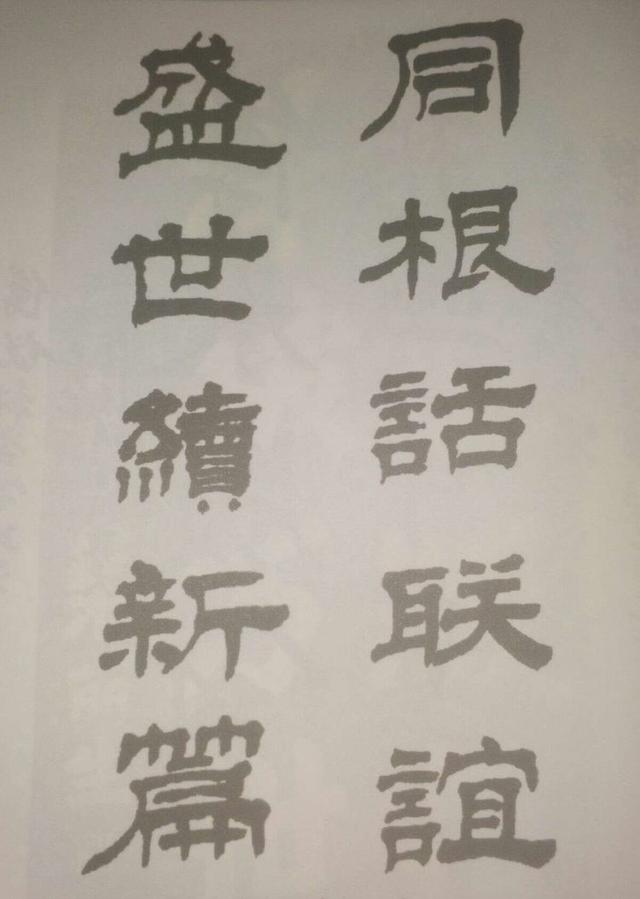 同根話联誼
盛世續新篇